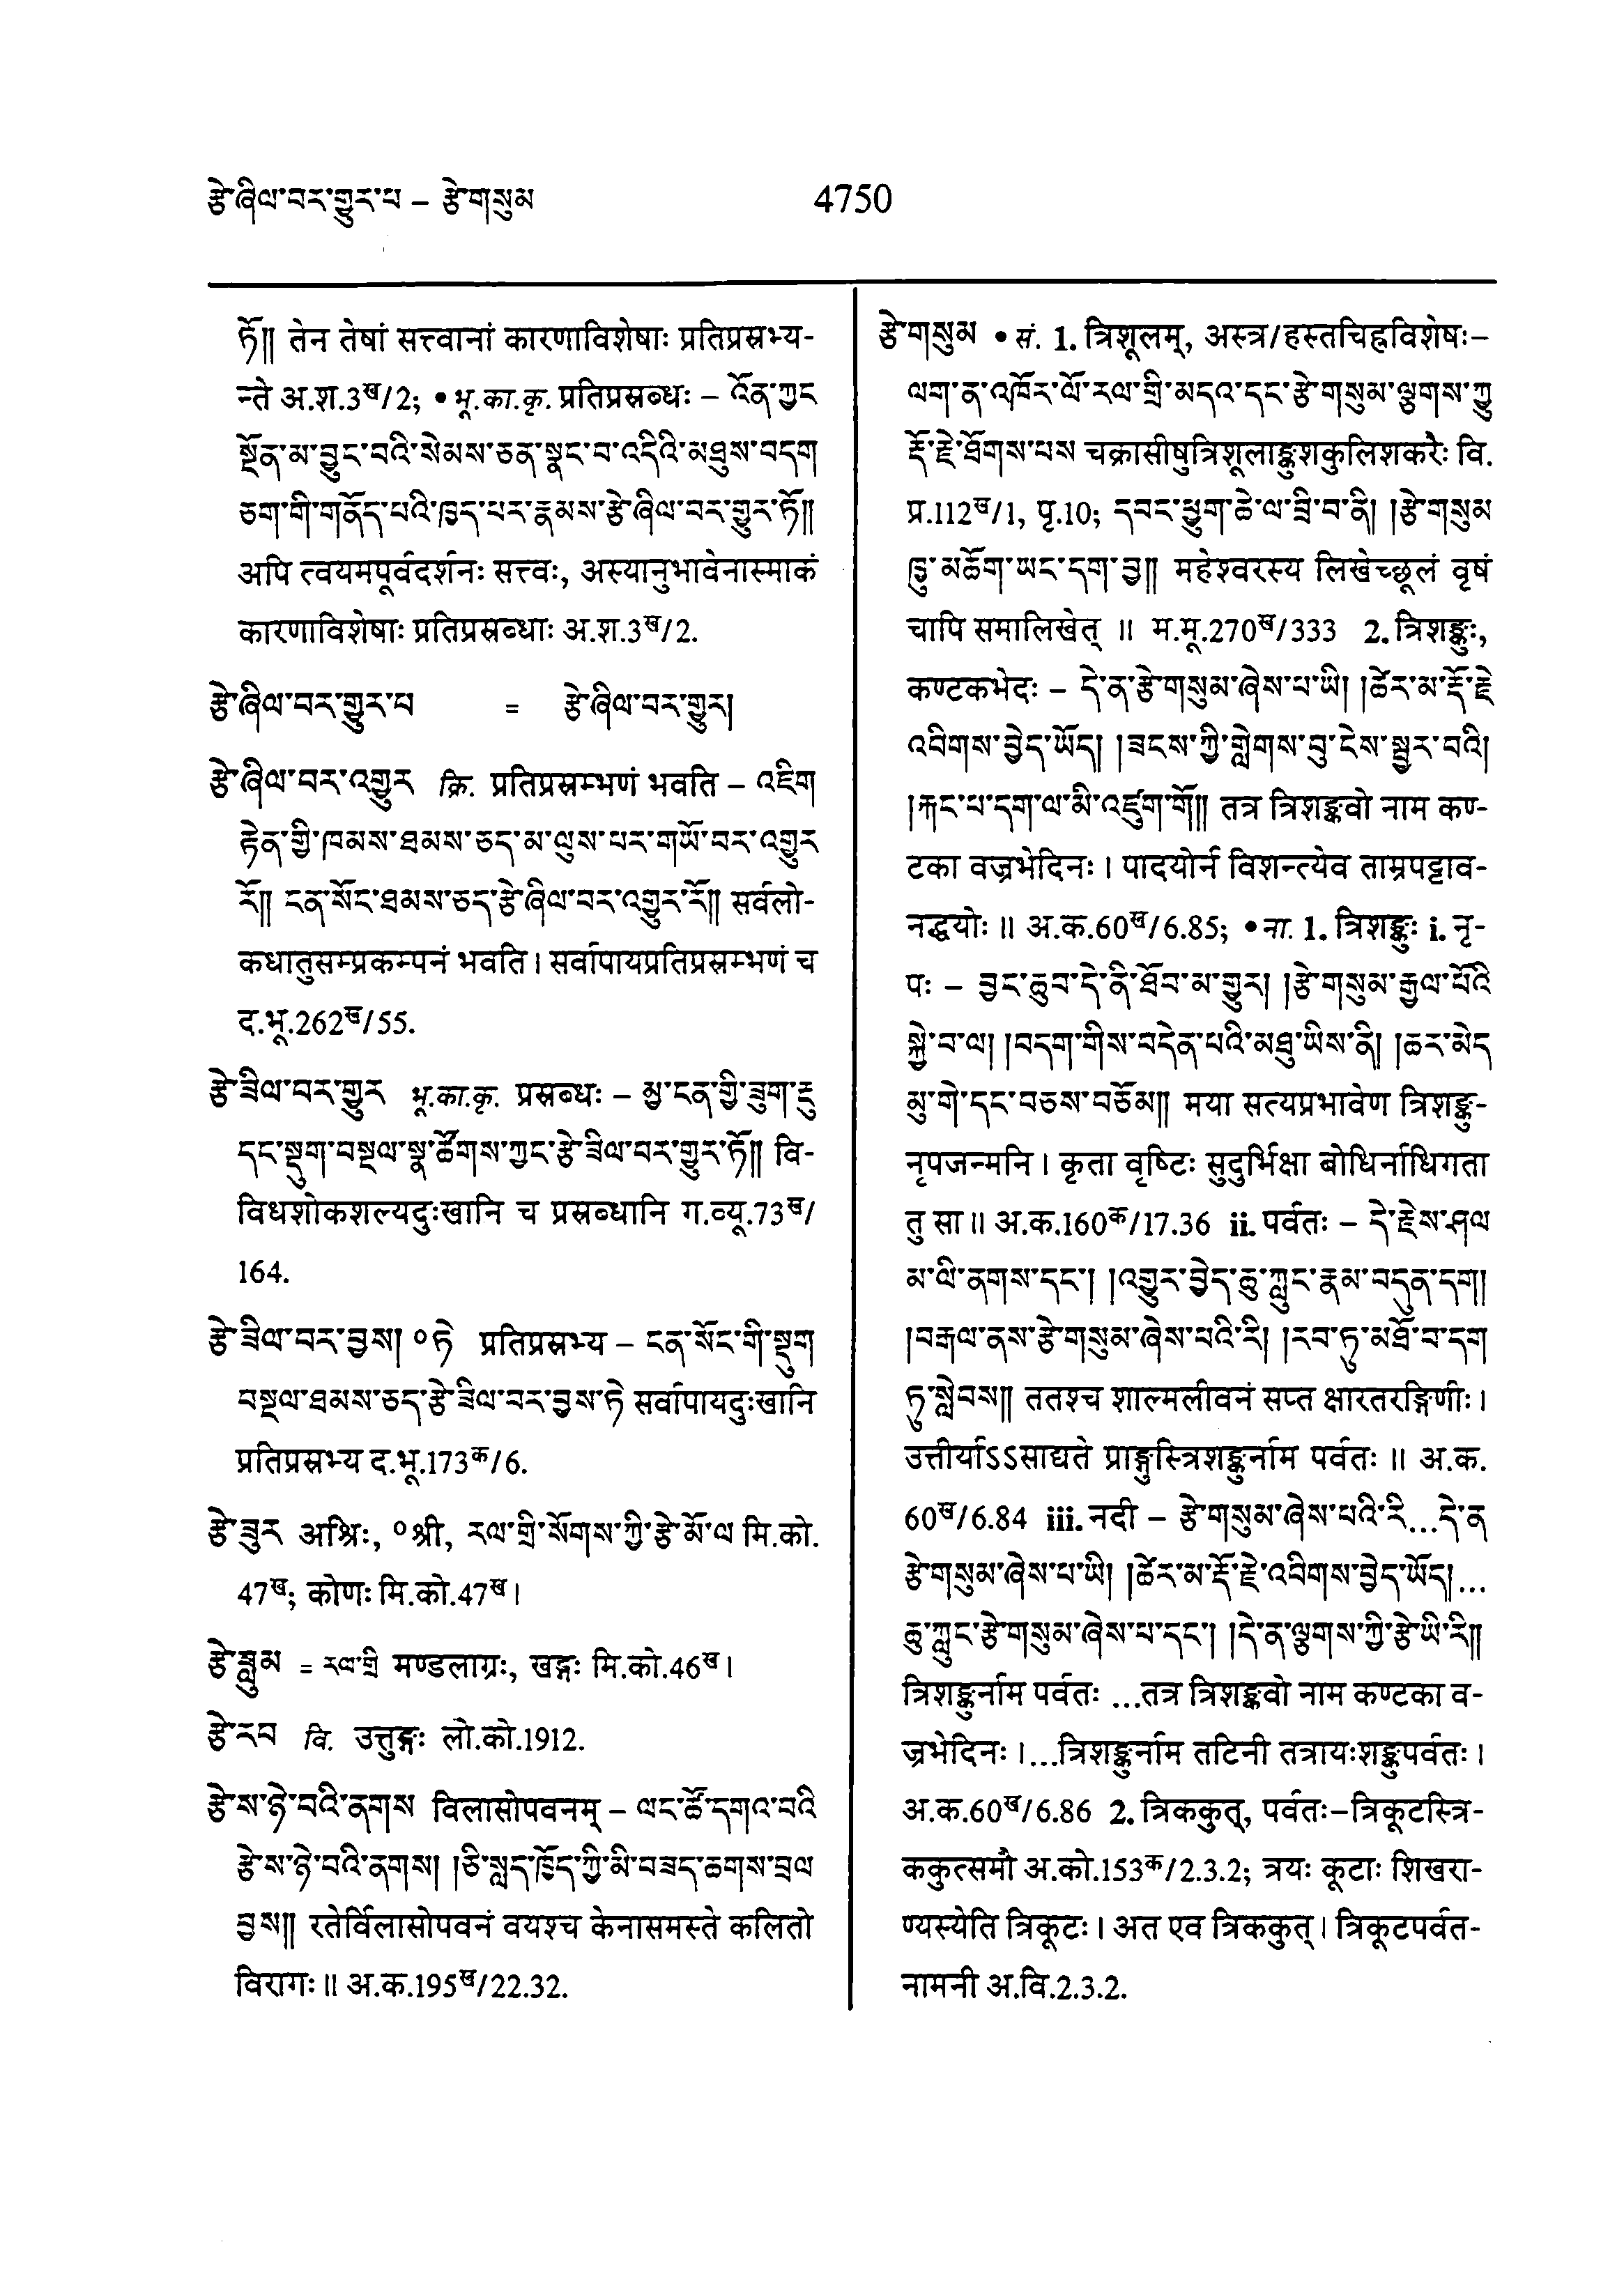 རྩེ་ཞིལ་བར་གྱུར་པ – རྩེ་གསུམ
4750
ཏོ།། तेन तेषां सत्त्वानां कारणाविशेषाः प्रतिप्रस्रभ्य-
न्ते अ.श.3ख/2; • भू.का.कृ. प्रतिप्रस्रब्धः – འོན་ཀྱང
སྔོན་མ་བྱུང་བའི་སེམས་ཅན་སྣང་བ་འདིའི་མཐུས་བདག
ཅག་གི་གནོད་པའི་ཁྱད་པར་རྣམས་རྩེ་ཞིལ་བར་གྱུར་ཏོ།།
अपि त्वयमपूर्वदर्शनः सत्त्वः, अस्यानुभावेनास्माकं
कारणाविशेषाः प्रतिप्रस्रब्धाः अ.श.3ख/2.
རྩེ་ཞིལ་བར་གྱུར་པ = རྩེ་ཞིལ་བར་གྱུར།
རྩེ་ཞིལ་བར་འགྱུར क्रि. प्रतिप्रस्रम्भणं भवति – འཇིག
རྟེན་གྱི་ཁམས་ཐམས་ཅད་མ་ལུས་པར་གཡོ་བར་འགྱུར
རོ།། ངན་སོང་ཐམས་ཅད་རྩེ་ཞིལ་བར་འགྱུར་རོ།། सर्वलो-
कधातुसम्प्रकम्पनं भवति। सर्वापायप्रतिप्रस्रम्भणं च
द.भू.262ख/55.
རྩེ་ཟིལ་བར་གྱུར भू.का.कृ. प्रस्रब्धः – མྱ་ངན་གྱི་ཟུག་རྔུ
དང་སྡུག་བསྔལ་སྣ་ཚོགས་ཀྱང་རྩེ་ཟིལ་བར་གྱུར་ཏོ།། वि-
विधशोकशल्यदुःखानि च प्रस्रब्धानि ग.व्यू.73ख/
164.
རྩེ་ཟིལ་བར་བྱས། ०ཏེ प्रतिप्रस्रभ्य – ངན་སོང་གི་སྡུག
བསྔལ་ཐམས་ཅད་རྩེ་ཟིལ་བར་བྱས་ཏེ सर्वापायदुःखानि
प्रतिप्रस्रभ्य द.भू.173क/6.
རྩེ་ཟུར अश्रिः, ०श्री, རལ་གྲི་སོགས་ཀྱི་རྩེ་མོ་ལ मि.को.
47ख; कोणः मि.को.47ख।
རྩེ་ཟླུམ = རལ་གྲི मण्डलाग्रः, खड्गः मि.को.46ख।
རྩེ་རབ वि. उत्तुङ्गः लो.को.1912.
རྩེ་ས་ཉེ་བའི་ནགས विलासोपवनम् – ལང་ཚོ་དགའ་བའི
རྩེ་ས་ཉེ་བའི་ནགས། །ཅི་སླད་ཁྱོད་ཀྱི་མི་བཟད་ཆགས་བྲལ
བྱས།། रतेर्विलासोपवनं वयश्च केनासमस्ते कलितो
विरागः॥ अ.क.195ख/22.32.
རྩེ་གསུམ • सं. 1. त्रिशूलम्, अस्त्र/हस्तचिह्नविशेषः–
ལག་ན་འཁོར་ལོ་རལ་གྲི་མདའ་དང་རྩེ་གསུམ་ལྕགས་ཀྱུ
རྡོ་རྗེ་ཐོགས་པས चक्रासीषुत्रिशूलाङ्कुशकुलिशकरैः वि.
प्र.112ख/1, पृ.10; དབང་ཕྱུག་ཆེ་ལ་ཟི་བ་ནི། །རྩེ་གསུམ
ཁྱུ་མཆོག་ཡང་དག་བྱ།། महेश्वरस्य लिखेच्छूलं वृषं
चापि समालिखेत् ॥ म.मू.270ख/333 2. त्रिशङ्कुः,
कण्टकभेदः – དེ་ན་རྩེ་གསུམ་ཞེས་པ་ཡི། །ཚེར་མ་རྡོ་རྗེ
འབིགས་བྱེད་ཡོད། །ཟངས་ཀྱི་གླེགས་བུ་ངེས་སྦྱར་བའི།
།རྐང་པ་དག་ལ་མི་འཛུག་གོ།། तत्र त्रिशङ्कवो नाम कण्-
टका वज्रभेदिनः। पादयोर्न विशन्त्येव ताम्रपट्टाव-
नद्धयोः॥ अ.क.60ख/6.85; • ना. 1. त्रिशङ्कुः i. नृ-
पः – བྱང་ཆུབ་དེ་ནི་ཐོབ་མ་གྱུར། །རྩེ་གསུམ་རྒྱལ་པོའི
སྐྱེ་བ་ལ། །བདག་གིས་བདེན་པའི་མཐུ་ཡིས་ནི། །ཆར་མེད
མུ་གེ་དང་བཅས་བཅོམ།། मया सत्यप्रभावेण त्रिशङ्कु-
नृपजन्मनि। कृता वृष्टिः सुदुर्भिक्षा बोधिर्नाधिगता
तु सा॥ अ.क.160क/17.36 ii. पर्वतः – དེ་རྗེས་ཤལ
མ་ལི་ནགས་དང་། །འགྱུར་བྱེད་ཆུ་ཀླུང་རྣམ་བདུན་དག།
།བརྒལ་ནས་རྩེ་གསུམ་ཞེས་པའི་རི། །རབ་ཏུ་མཐོ་བ་དག
ཏུ་སླེབས།། ततश्च शाल्मलीवनं सप्त क्षारतरङ्गिणीः।
उत्तीर्याऽऽसाद्यते प्राङ्गुस्त्रिशङ्कुर्नाम पर्वतः॥ अ.क.
60ख/6.84 iii. नदी – རྩེ་གསུམ་ཞེས་པའི་རི...དེ་ན
རྩེ་གསུམ་ཞེས་པ་ཡི། །ཚེར་མ་རྡོ་རྗེ་འབིགས་བྱེད་ཡོད།...
ཆུ་ཀླུང་རྩེ་གསུམ་ཞེས་པ་དང་། །དེ་ན་ལྕགས་ཀྱི་རྩེ་ཡི་རི།།
त्रिशङ्कुर्नाम पर्वतः ...तत्र त्रिशङ्कवो नाम कण्टका व-
ज्रभेदिनः।...त्रिशङ्कुर्नाम तटिनी तत्रायःशङ्कुपर्वतः।
अ.क.60ख/6.86 2. त्रिककुत्, पर्वतः–त्रिकूटस्त्रि-
ककुत्समौ अ.को.153क/2.3.2; त्रयः कूटाः शिखरा-
ण्यस्येति त्रिकूटः। अत एव त्रिककुत्। त्रिकूटपर्वत-
नामनी अ.वि.2.3.2.